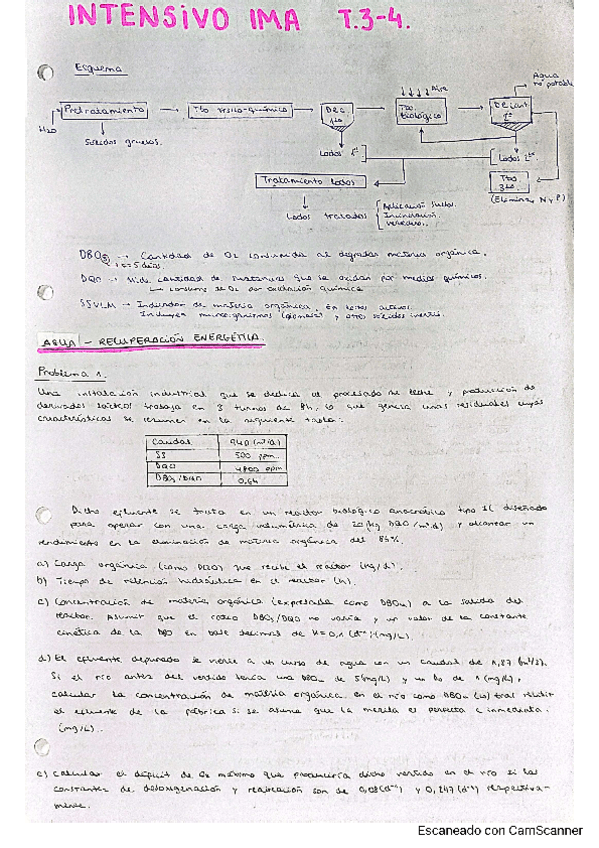 INTENSIVO IMA T.3-4.
Esquema
Aire
Agua no potable
H2O
Pretratamiento
Tto físico-químico
Dec 1º
Tto. biológico
Decant. 2º
Sólidos gruesos.
Lodos 1º
Lodos 2º.
Tto 3º
(Elimina N y P)
Tratamiento lodos
Lodos tratados
Aplicación suelos.
Incineración.
Vertedero.
DBO5 → Cantidad de O2 consumida al degradar materia orgánica.
t = 5 días
DQO → Mide cantidad de sustancias que se oxidan por medios químicos.
consumo de O2 por oxidación química
SSVLM → Indicador de materia orgánica, en lodos activos.
Incluyen microorganismos y otros sólidos inertes.
AGUA - RECUPERACIÓN ENERGÉTICA.
Problema 1.
Una instalación industrial que se dedica al procesado de leche y producción de
derivados lácteos trabaja en 3 turnos de 8h, lo que genera unas residuales cuyas
características se resumen en la siguiente tabla:
Caudal 940 (m³/d)
SS 500 ppm
DQO 4800 ppm
DBO5/DQO 0,64
Dicho efluente se trata en un reactor biológico anaeróbico tipo diseñado
para operar con una carga volumétrica de DQO/m³.d) y alcanzar un
rendimiento en la eliminación de materia orgánica del
a) Carga orgánica (como DQO) que recibe el reactor (kg/d).
b) Tiempo de retención hidráulica en el reactor (h).
c) Concentración de materia orgánica (expresada como DBOu) a la salida del
reactor. Asumir que el ratio DBO5/DQO no varía y un valor de la constante
cinética de la DBO en base decimal de K=0,1 (d⁻¹) (mg/L).
d) El efluente depurado se vierte a un curso de agua con un caudal de 1,87 (m³/s).
Si el río antes del vertido tenía una DBOu de 5(mg/L) y un Do de 1 (mg/L),
calcular la concentración de materia orgánica en el río como DBOu (Lo) tras recibir
el efluente de la fábrica si se asume que la mezcla es perfecta e inmediata.
(mg/L).
e) Calcular el déficit de O2 máximo que produciría dicho vertido en el río si las
constantes de desoxigenación y reaireación son de 0,08(d⁻¹) y 0,247(d⁻¹) respectiva-
mente.
Escaneado con CamScanner